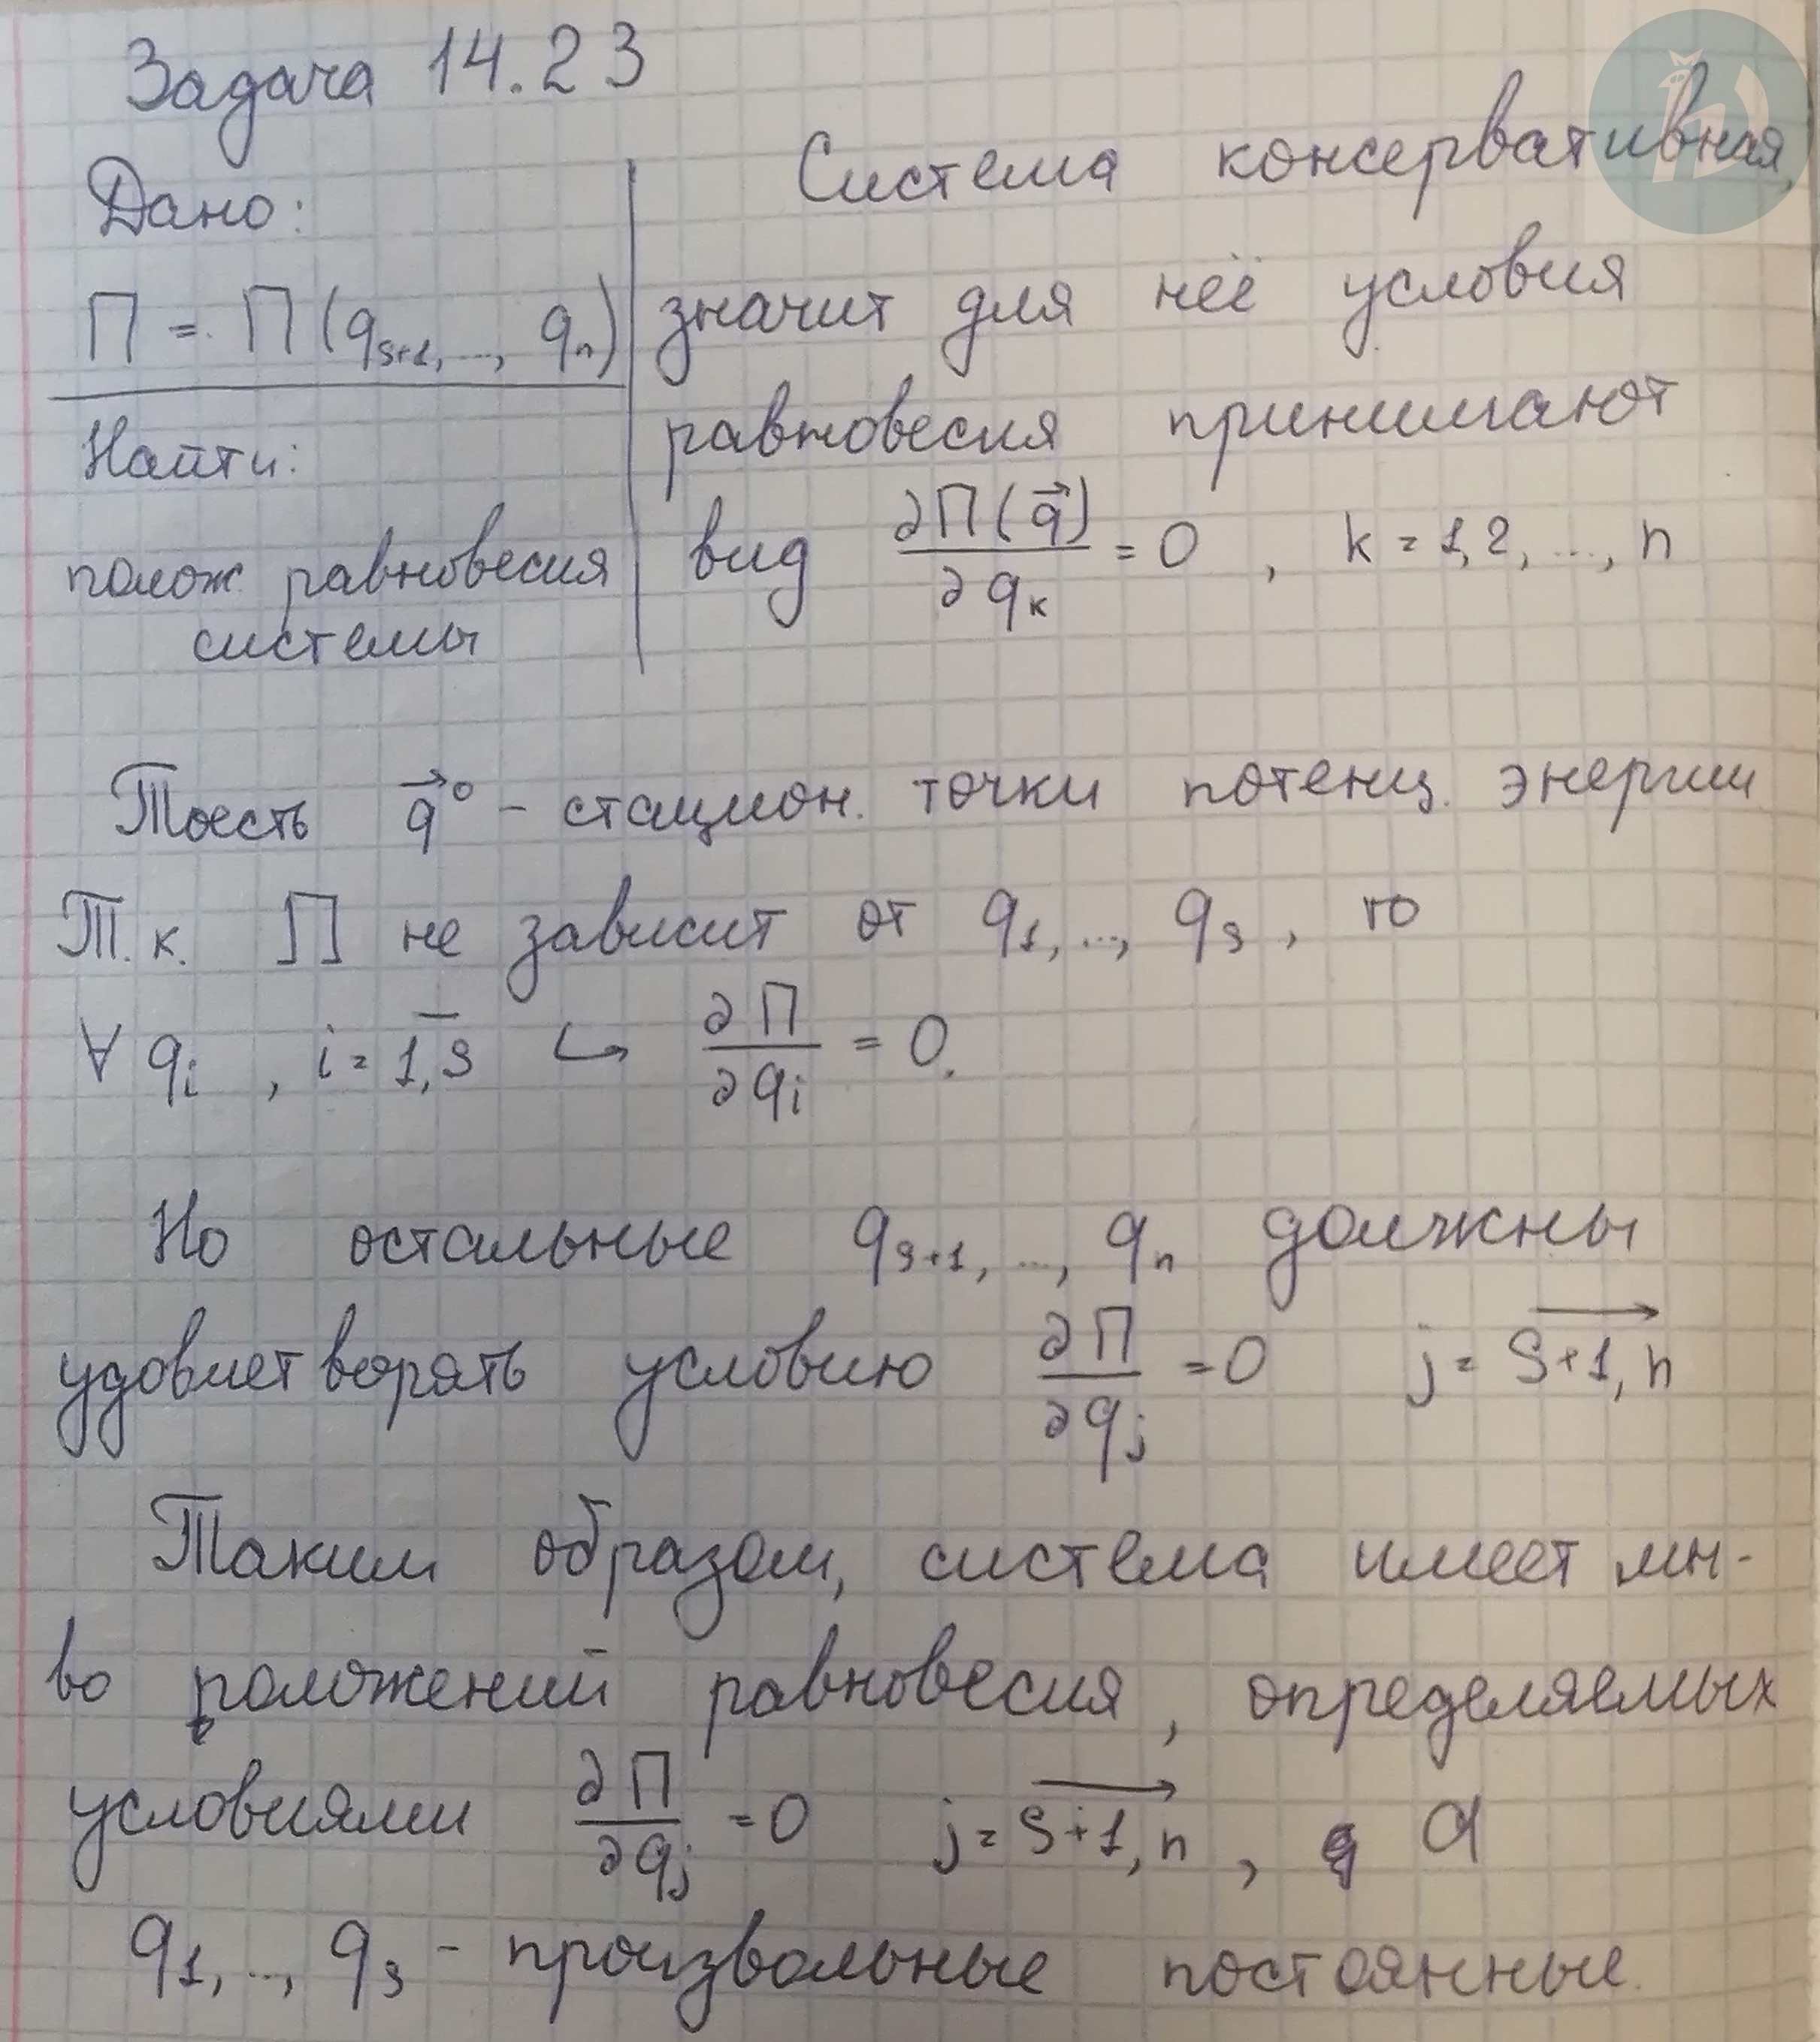 Задача 14.23
Дано:
П = П(q_{s+1}, ..., q_n)
Найти:
полож. равновесия
системы
Система консервативная,
значит для неё условия
равновесия принимают
вид ∂П(q⃗)/∂q_k = 0, k = 1, 2, ..., n
Тоесть q⃗° - стацион. точки потенц. энергии
Т.к. П не зависит от q_1, ..., q_s, то
∀ q_i, i = \overline{1, s} ↪ ∂П/∂q_i = 0.
Но остальные q_{s+1}, ..., q_n должны
удовлетворять условию ∂П/∂q_j = 0 j = \overrightarrow{s+1, n}
Таким образом, система имеет мн-
во положений равновесия, определяемых
условиями ∂П/∂q_j = 0 j = \overrightarrow{s+1, n}, а
q_1, ..., q_s - произвольные постоянные.